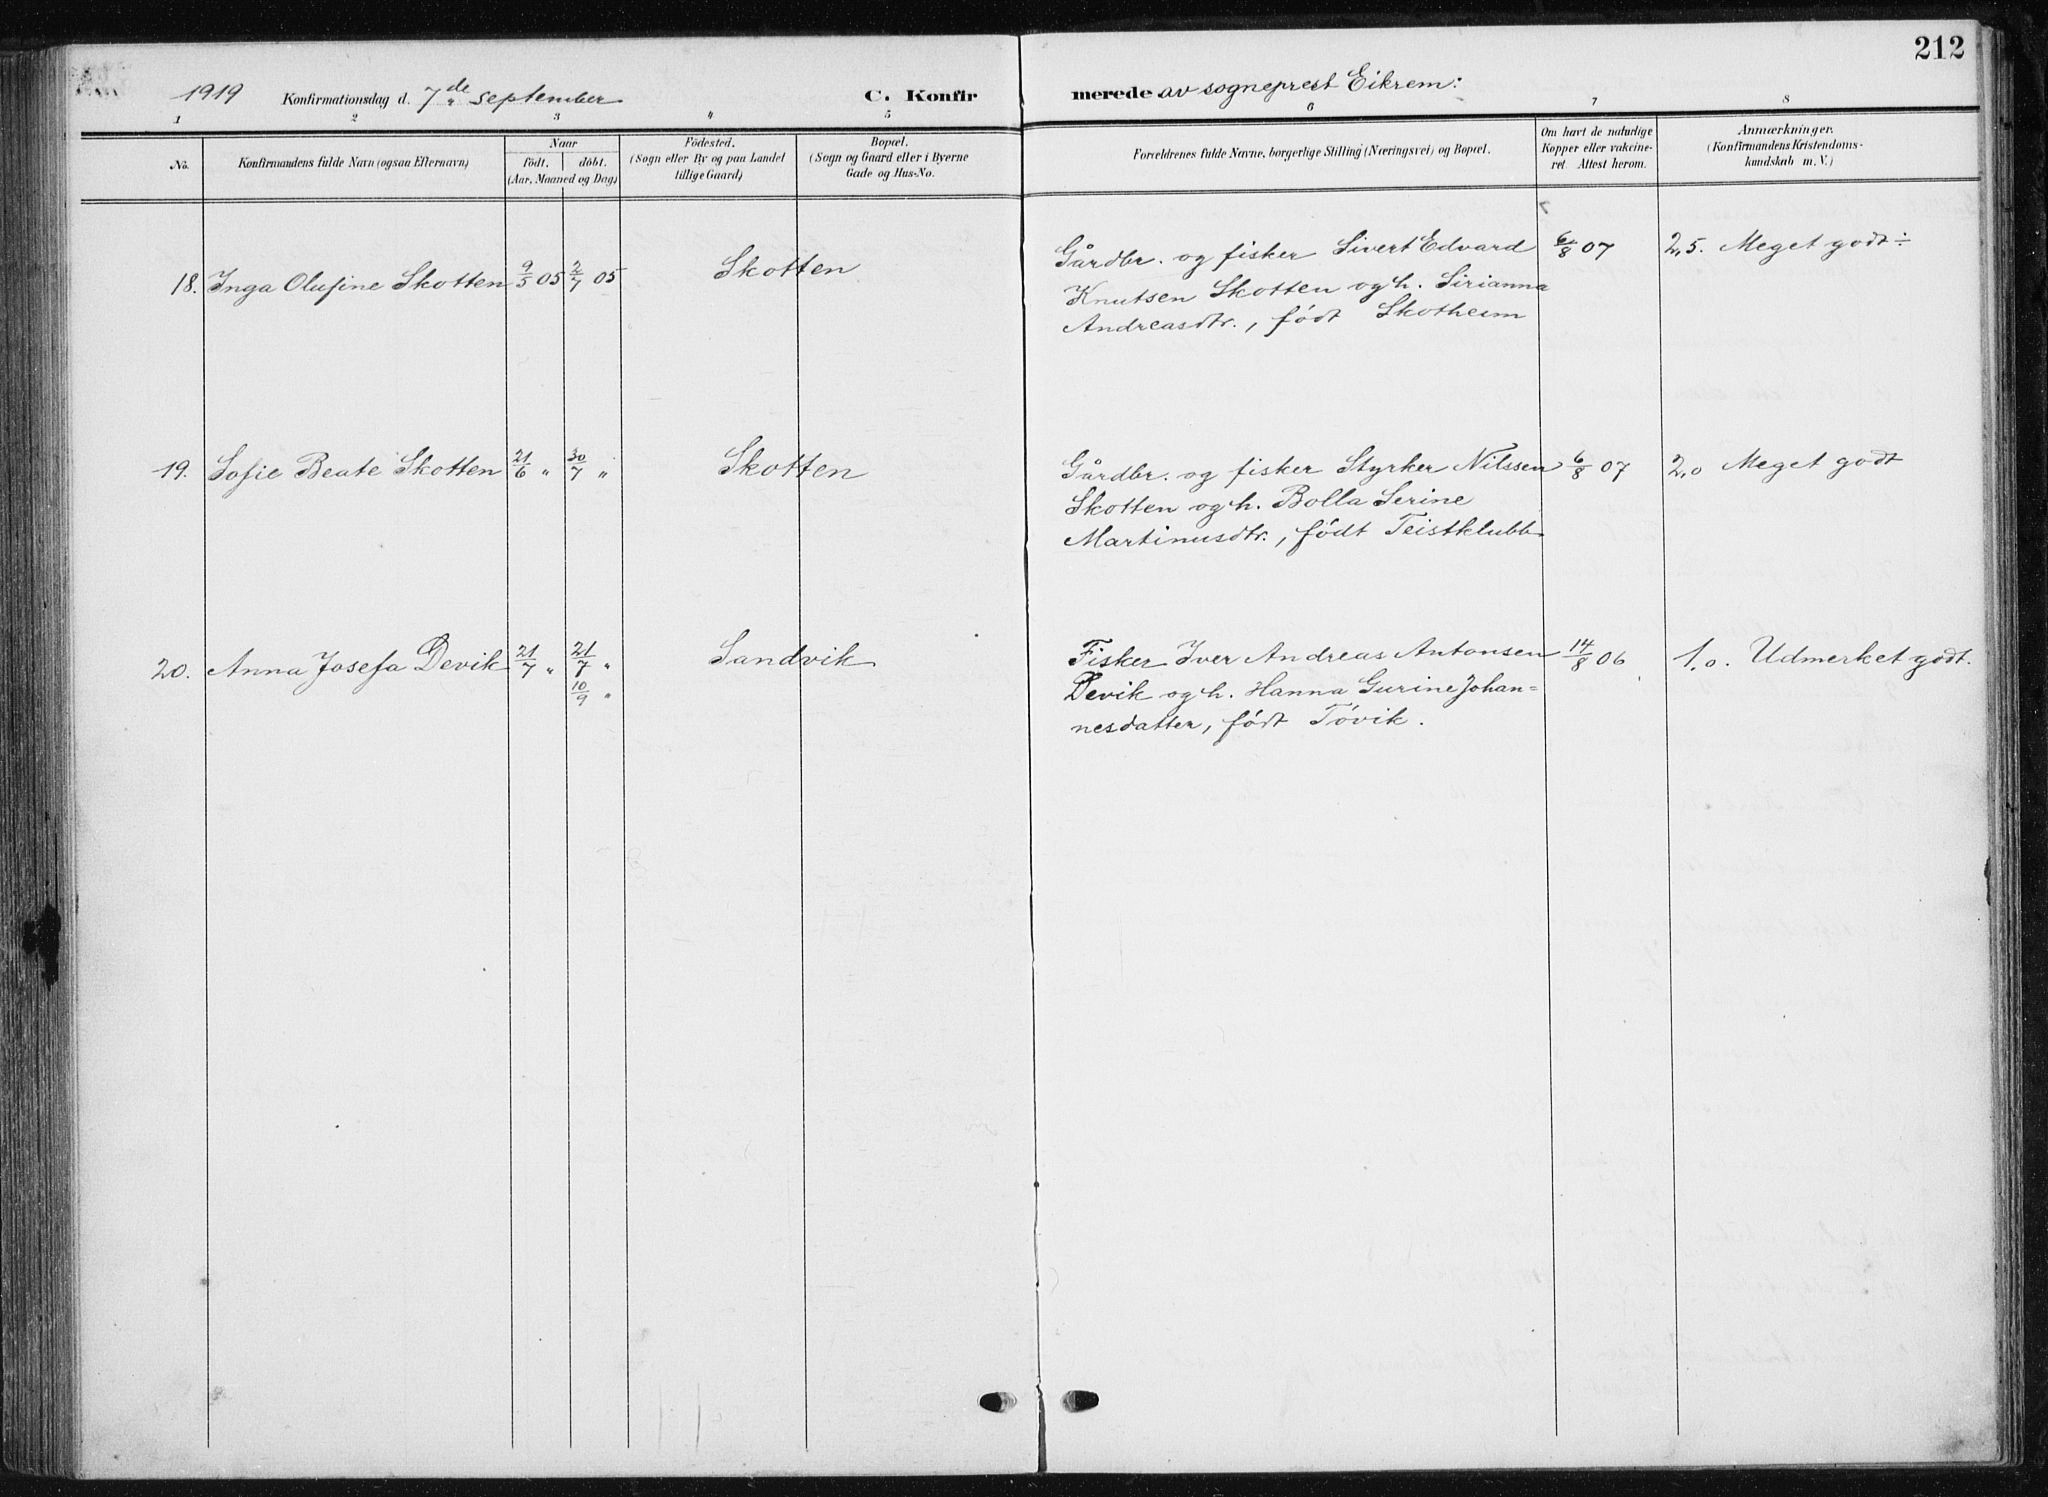 212
1919 Konfirmationsdag d. 7de september C. Konfirmerede av sogneprest Eikrem:
1 2 3 4 5 6 7 8
No. Konfirmandens fulde Navn (ogsaa Efternavn) Naar født. døbt. (Aar, Maaned og Dag) Fødested. (Sogn eller By og paa Landet tillige Gaard) Bopæl. (Sogn og Gaard eller i Byerne Gade og Hus-No. Forældrenes fulde Navne, borgerlige Stilling (Næringsvei) og Bopæl. Om havt de naturlige Kopper eller vakcineret. Attest herom. Anmærkninger. (Konfirmandens Kristendomskundskab m. V.)
18. Inga Olufine Skotten 9/5 05 2/7 05 Skotten Gårdbr. og fisker Sivert Edvard 6/8 07 2,5. Meget godt ÷
Knutsen Skotten og h. Sirianna
Andreasdtr., født Skotheim
19. Sofie Beate Skotten 21/6 " 30/7 " Skotten Gårdbr. og fisker Styrker Nilssen 6/8 07 2,0 Meget godt
Skotten og h. Bolla Serine
Martinusdtr., født Teistklubb
20. Anna Josefa Devik 21/7 " 21/7 " Sandvik Fisker Iver Andreas Antonsen 14/8 06 1,0. Udmerket godt.
10/9 " Devik og h. Hanna Gurine Johan=
nesdatter, født Tøvik.